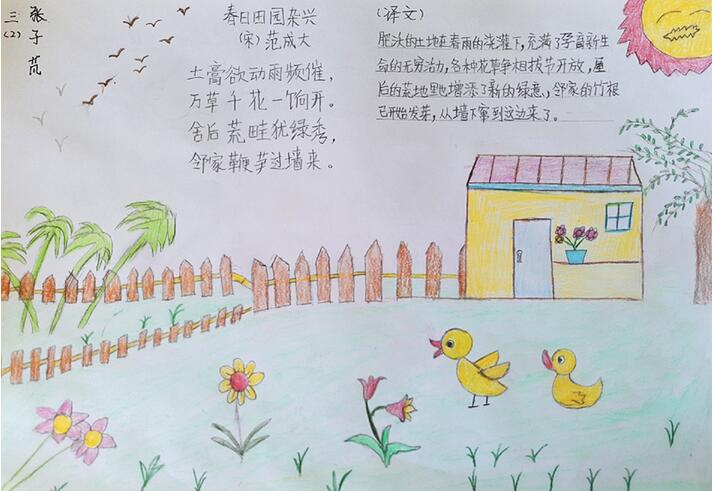 三(2)
张子
春日田园杂兴
(宋)范成大
土膏欲动雨频催，
万草千花一饷开。
舍后荒畦犹绿秀，
邻家鞭笋过墙来。
(译文)
肥沃的土地在春雨的浇灌下，充满了孕育新生
命的无穷活力，各种花草争相拔节开放，屋
后的荒地里也增添了新的绿意，邻家的竹根
已开始发芽，从墙下窜到这边来了。